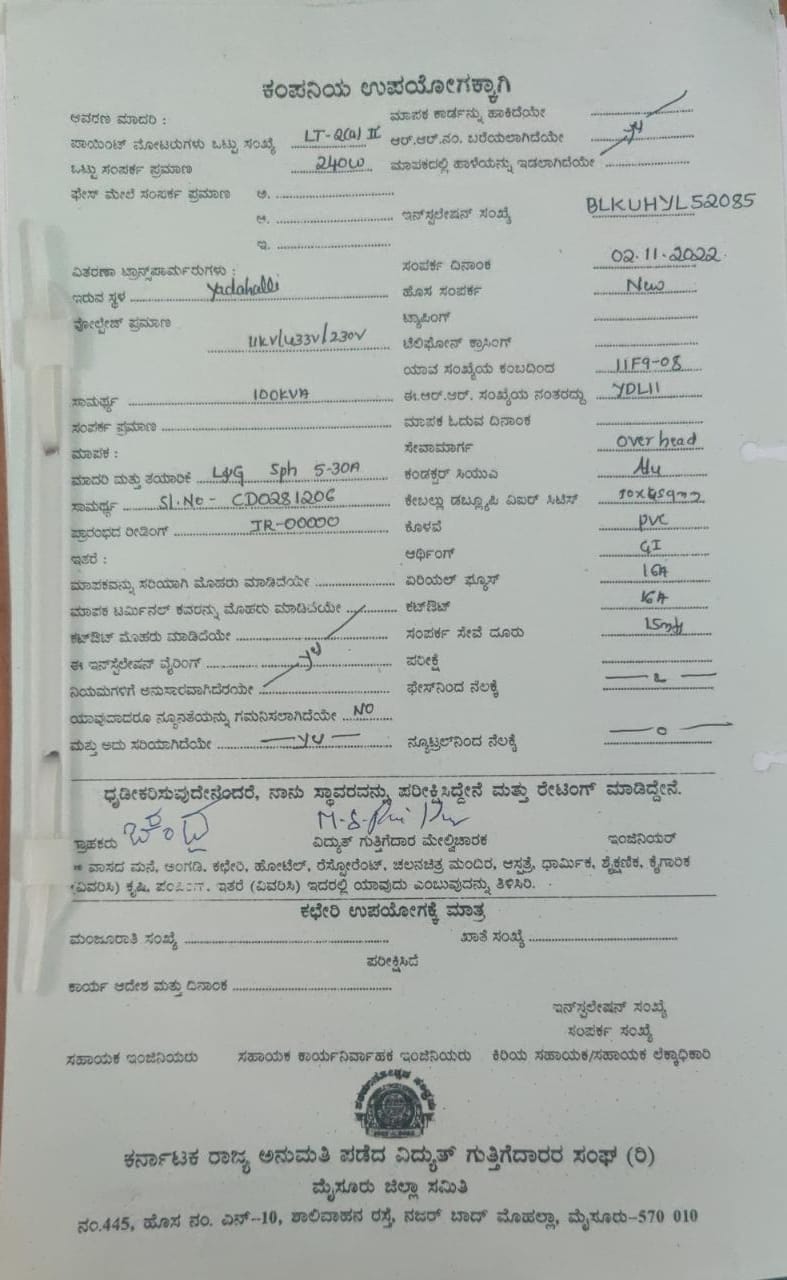 ಕಂಪನಿಯ ಉಪಯೋಗಕ್ಕಾಗಿ
ಆವರಣ ಮಾದರಿ : ಮಾಪಕ ಕಾರ್ಡನ್ನು ಹಾಕಿದೆಯೇ
ಪಾಯಿಂಟ್ ಮೋಟರುಗಳು ಒಟ್ಟು ಸಂಖ್ಯೆ LT-2(a) II ಆರ್.ಆರ್.ನಂ. ಬರೆಯಲಾಗಿದೆಯೇ
ಒಟ್ಟು ಸಂಪರ್ಕ ಪ್ರಮಾಣ 240W ಮಾಪಕದಲ್ಲಿ ಹಾಳೆಯನ್ನು ಇಡಲಾಗಿದೆಯೇ
ಫೇಸ್ ಮೇಲೆ ಸಂಪರ್ಕ ಪ್ರಮಾಣ ಅ.
ಆ. ಇನ್‌ಸ್ಟಲೇಷನ್ ಸಂಖ್ಯೆ BLKUHYL52085
ಇ.
ವಿತರಣಾ ಟ್ರಾನ್ಸ್‌ಫಾರ್ಮರುಗಳು : ಸಂಪರ್ಕ ದಿನಾಂಕ 02.11.2022
ಇರುವ ಸ್ಥಳ Yadahalli ಹೊಸ ಸಂಪರ್ಕ New
ವೋಲ್ಟೇಜ್ ಪ್ರಮಾಣ ಟ್ಯಾಪಿಂಗ್
11KV/433V/230V ಟೆಲಿಫೋನ್ ಕ್ರಾಸಿಂಗ್
ಯಾವ ಸಂಖ್ಯೆಯ ಕಂಬದಿಂದ 11F9-08
ಸಾಮರ್ಥ್ಯ 100KVA ಈ.ಆರ್.ಆರ್. ಸಂಖ್ಯೆಯ ನಂತರದ್ದು YDL11
ಸಂಪರ್ಕ ಪ್ರಮಾಣ ಮಾಪಕ ಓದುವ ದಿನಾಂಕ
ಮಾಪಕ : ಸೇವಾಮಾರ್ಗ over head
ಮಾದರಿ ಮತ್ತು ತಯಾರಿಕೆ L&G Sph 5-30A ಕಂಡಕ್ಟರ್ ಸಿಯುಎ Alu
ಸಾಮರ್ಥ್ಯ Sl.No - CD0281206 ಕೇಬಲ್ಲು ಡಬ್ಲ್ಯೂಪಿ ವಿಐರ್ ಸಿಟಿಸ್
ಪ್ರಾರಂಭದ ರೀಡಿಂಗ್ IR-00000 ಕೊಳವೆ PVC
ಇತರೆ : ಅರ್ಥಿಂಗ್ GI
ಮಾಪಕವನ್ನು ಸರಿಯಾಗಿ ಮೊಹರು ಮಾಡಿದೆಯೇ ಏರಿಯೆಲ್ ಫ್ಯೂಸ್ 16A
ಮಾಪಕ ಟರ್ಮಿನಲ್ ಕವರನ್ನು ಮೊಹರು ಮಾಡಿದೆಯೇ ಕಟ್‌ಔಟ್ 16A
ಕಟ್‌ಔಟ್ ಮೊಹರು ಮಾಡಿದೆಯೇ ಸಂಪರ್ಕ ಸೇವೆ ದೂರು
ಈ ಇನ್‌ಸ್ಟಲೇಷನ್ ವೈರಿಂಗ್ ಪರೀಕ್ಷೆ
ನಿಯಮಗಳಿಗೆ ಅನುಸಾರವಾಗಿದೆರೆಯೇ ಫೇಸ್‌ನಿಂದ ನೆಲಕ್ಕೆ
ಯಾವುದಾದರೂ ನ್ಯೂನತೆಯನ್ನು ಗಮನಿಸಲಾಗಿದೆಯೇ NO
ಮತ್ತು ಅದು ಸರಿಯಾಗಿದೆಯೇ ನ್ಯೂಟ್ರಲ್‌ನಿಂದ ನೆಲಕ್ಕೆ
ಧೃಡೀಕರಿಸುವುದೇನೆಂದರೆ, ನಾನು ಸ್ಥಾವರವನ್ನು ಪರೀಕ್ಷಿಸಿದ್ದೇನೆ ಮತ್ತು ರೇಟಿಂಗ್ ಮಾಡಿದ್ದೇನೆ.
ಗ್ರಾಹಕರು ವಿದ್ಯುತ್ ಗುತ್ತಿಗೆದಾರ ಮೇಲ್ವಿಚಾರಕ ಇಂಜಿನಿಯರ್
* ವಾಸದ ಮನೆ, ಅಂಗಡಿ, ಕಛೇರಿ, ಹೋಟೆಲ್, ರೆಸ್ಟೋರೆಂಟ್, ಚಲನಚಿತ್ರ ಮಂದಿರ, ಆಸ್ಪತ್ರೆ, ಧಾರ್ಮಿಕ, ಶೈಕ್ಷಣಿಕ, ಕೈಗಾರಿಕ
(ವಿವರಿಸಿ) ಕೃಷಿ, ಇತರೆ (ವಿವರಿಸಿ) ಇದರಲ್ಲಿ ಯಾವುದು ಎಂಬುವುದನ್ನು ತಿಳಿಸಿರಿ.
ಕಛೇರಿ ಉಪಯೋಗಕ್ಕೆ ಮಾತ್ರ
ಮಂಜೂರಾತಿ ಸಂಖ್ಯೆ ಖಾತೆ ಸಂಖ್ಯೆ
ಪರೀಕ್ಷಿಸಿದೆ
ಕಾರ್ಯ ಆದೇಶ ಮತ್ತು ದಿನಾಂಕ
ಇನ್‌ಸ್ಟಲೇಷನ್ ಸಂಖ್ಯೆ
ಸಂಪರ್ಕ ಸಂಖ್ಯೆ
ಸಹಾಯಕ ಇಂಜಿನಿಯರು ಸಹಾಯಕ ಕಾರ್ಯನಿರ್ವಾಹಕ ಇಂಜಿನಿಯರು ಕಿರಿಯ ಸಹಾಯಕ/ಸಹಾಯಕ ಲೆಕ್ಕಾಧಿಕಾರಿ
ಕರ್ನಾಟಕ ರಾಜ್ಯ ಅನುಮತಿ ಪಡೆದ ವಿದ್ಯುತ್ ಗುತ್ತಿಗೆದಾರರ ಸಂಘ (ರಿ)
ಮೈಸೂರು ಜಿಲ್ಲಾ ಸಮಿತಿ
ನಂ.445, ಹೊಸ ನಂ. ಎನ್-10, ಶಾಲಿವಾಹನ ರಸ್ತೆ, ನಜರ್ ಬಾದ್ ಮೊಹಲ್ಲಾ, ಮೈಸೂರು-570 010